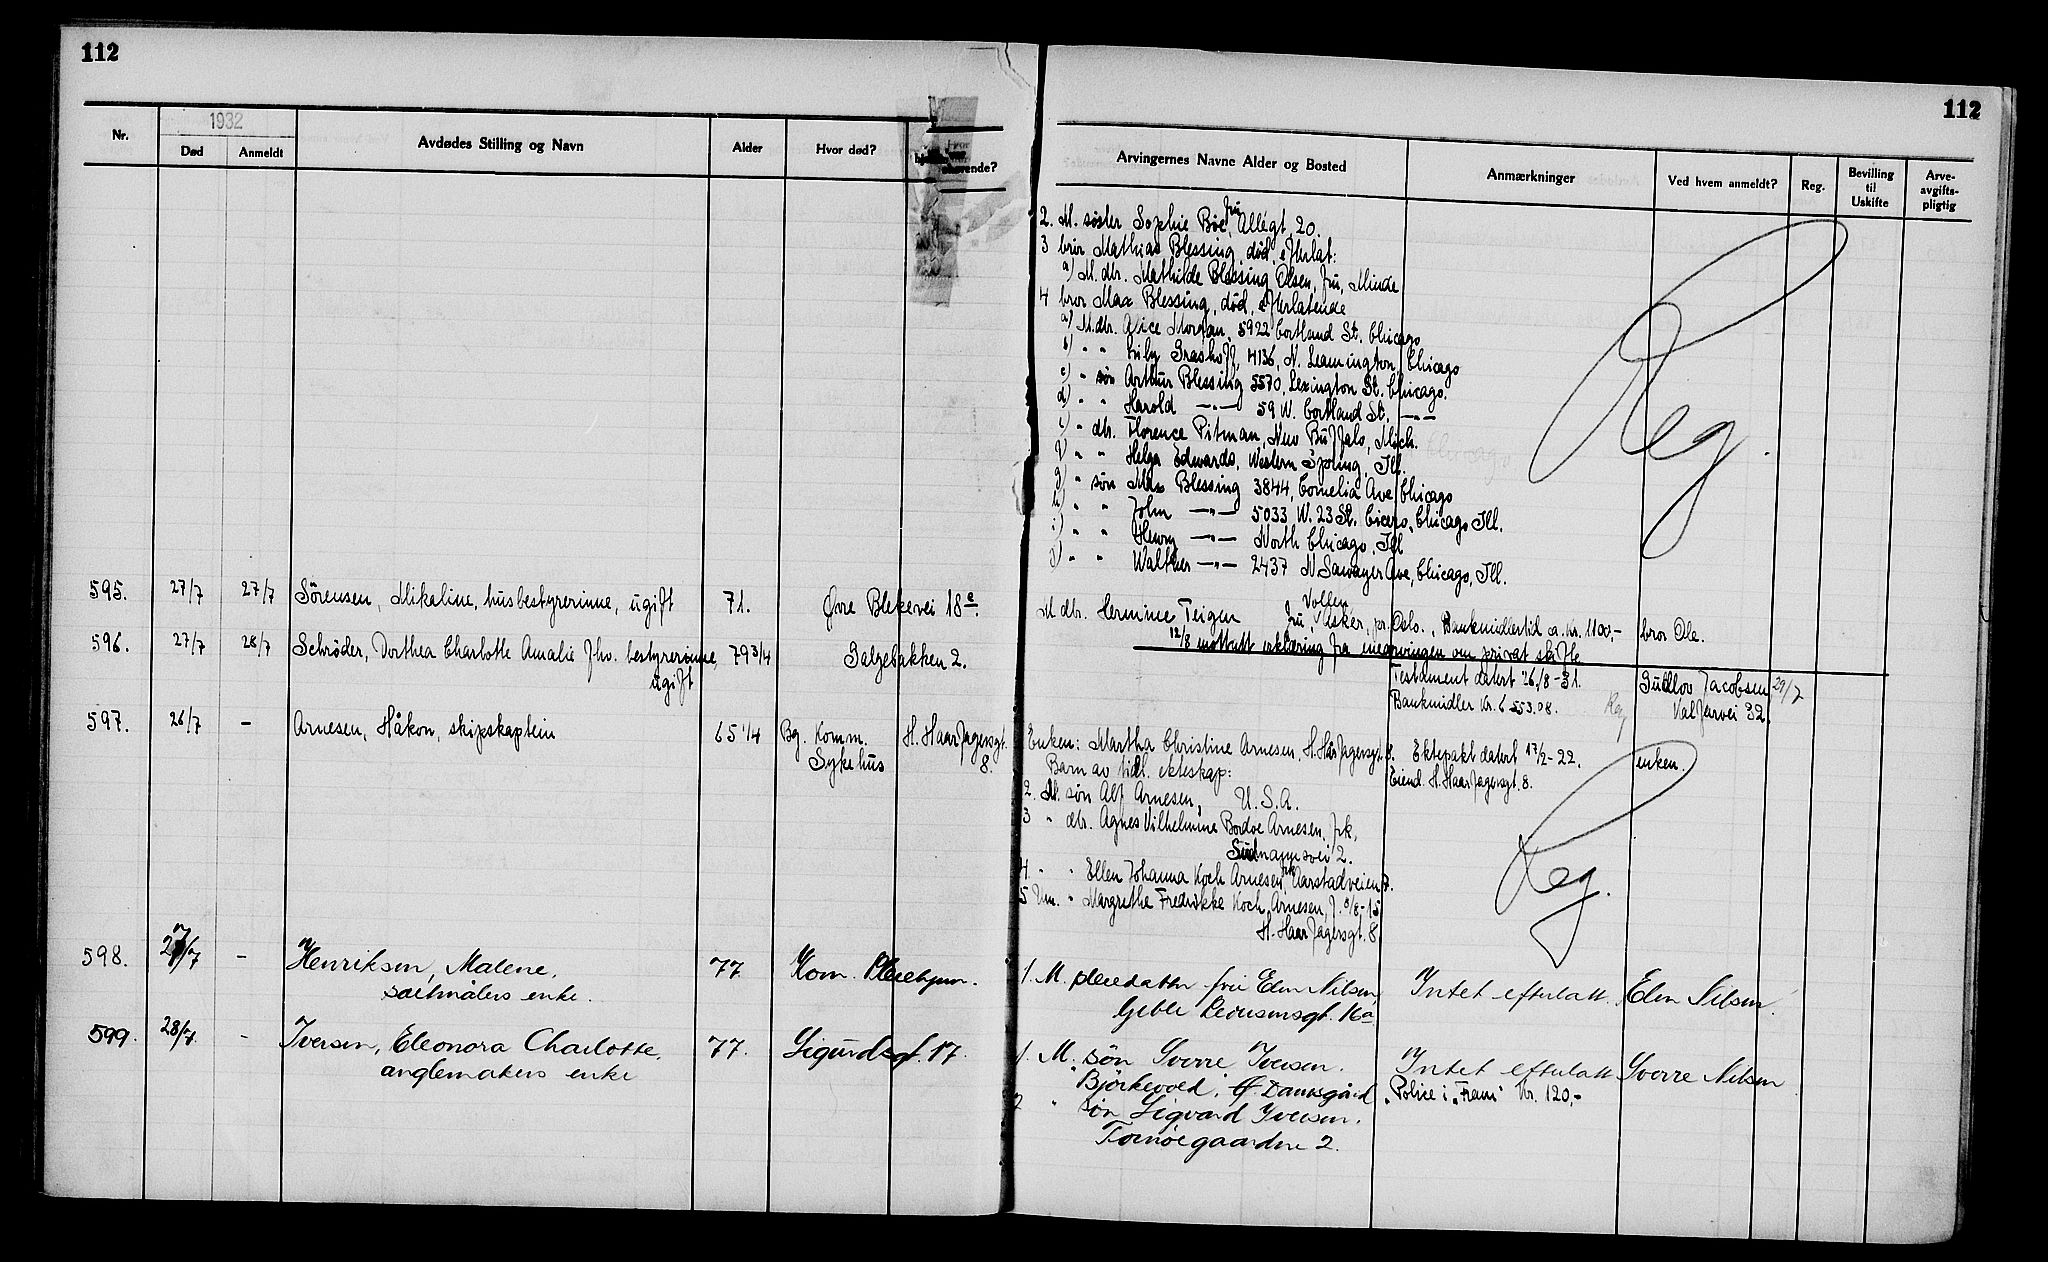 112
112
Nr.
1932
Død
Anmeldt
Avdødes Stilling og Navn
Alder
Hvor død?
Arvingernes Navne Alder og Bosted
Anmærkninger
Ved hvem anmeldt?
Reg.
Bevilling til Uskifte
Arve-avgifts-pligtig
2. M. søster Sophie Böe, fru Allégt. 20.
3 bror Mathias Blessing, död, efterlat:
a) M. dtr. Mathilde Blessing Olsen, fru, Minde
4 bror Max Blessing, död, efterlatende
a) M. dtr. Alice Morgan, 5922 Cortland St. Chicago
b) " " Lily Grashoff, 4136, N. Leamington, Chicago
c) " søn Arthur Blessing 5570, Lexington St. Chicago.
d) " " Harold —"— 59 W. Cortland St. —"—
e) " dtr. Florence Pitman, New Buffalo, Mich.
f) " " Helga Edwards, Western Spring, Ill.
g) " søn Max Blessing 3844, Cornelia Ave Chicago
h) " " John —"— 5033 W. 23 St. Cicero, Chicago Ill.
i) " " Henry —"— North Chicago, Ill
j) " " Walther —"— 2437 N Sawayer Ave, Chicago, Ill.
Reg.
595. 27/7 27/7 Sörensen, Mikaline, husbestyrerinne, ugift 71. Øvre Blekevei 18 e.
M. dtr. Hermine Teigen fru, Vollen, Asker, pr. Oslo., Bankmidler tid ca. Kr. 1100,- bror Ole.
12/8 mottatt erklæring fra enearvingen om privat skifte
596. 27/7 28/7 Schrøder, Dorthea Charlotte Amalie fhv. bestyrerinne, 79 3/4 Galgebakken 2.
ugift
Testament datert 26/8-31. Gudlov Jacobsen 29/7
Bankmidler Kr. 6553.08. Reg Kalfarvei 32.
597. 26/7 - Arnesen, Håkon, skipskaptein 65 1/4 Bg. Komm. Sykehus H. Haarfagersgt. 8.
Enken: Martha Christine Arnesen, H. Hårfagersgt. 8. Ektepakt datert 17/2-22. enken.
Barn av tidl. ekteskap: Eiend. H. Haarfagersgt. 8.
2. M. søn Alf Arnesen, U.S.A.
3 " dtr. Agnes Vilhelmine Bordoe Arnesen, frk,
2.
4 " " Ellen Johanna Koch Arnesen, frk Aarstadveien 7.
5 Um. " Margrethe Fredrikke Koch Arnesen, f. 8/8-15
H. Haarfagersgt. 8.
Reg.
598. 27/7 - Henriksen, Malene, 77 Kom. Pleiehjem.
saltmålers enke.
1. M. pleiedatter fru Elen Nilsen, Intet efterlatt. Elen Nilsen.
Geble Pedersensgt. 16a
599. 28/7. - Iversen, Eleonora Charlotte, 77. Sigurdsgt. 17.
anglemakers enke
1. M. søn Sverre Iversen. Intet efterlatt Sverre Nilsen
Björkevold, Damsgård Police i "Fram" Kr. 120,-
2 " søn Sigvard Iversen.
Tornöegaarden 2.